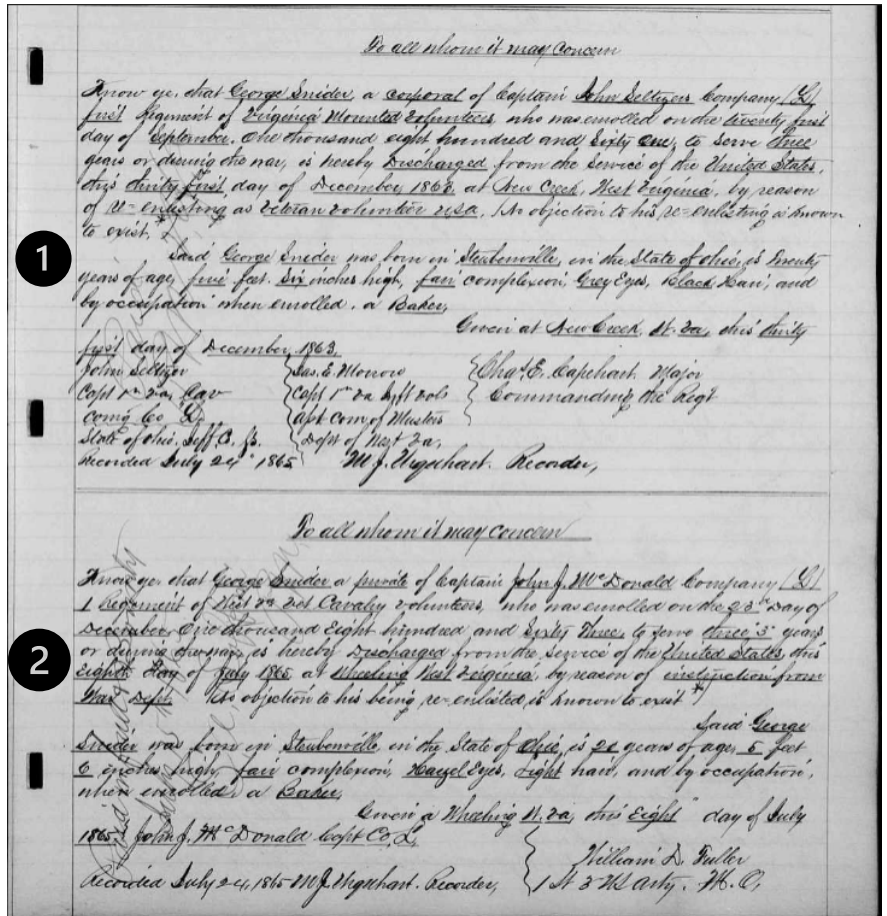 To all whom it may concern
Know ye, that George Snider, a corporal of Captain John Seltzers Company (L)
first Regiment of Virginia Mounted Volunteers, who was enrolled on the twenty first
day of September. One thousand eight hundred and Sixty One, to serve three
years or during the war, is hereby Discharged from the Service of the United States,
this thirty first day of December, 1863, at New Creek, West Virginia, by reason
of re-enlisting as veteran volunteer USA. (No objection to his re-enlisting is known
to exist.
1
Said George Snider was born in Steubenville, in the State of Ohio, is twenty
years of age, five feet. Six inches high, fair complexion, Grey Eyes, Black Hair, and
by occupation when enrolled, a Baker,
Given at New Creek, W. Va, this thirty
first day of December, 1863,
John Seltzer Jas. E. Morrow Chas. E. Capehart Major
Capt 1st Va, Cav Capt 1st Va Vols Commanding the Regt
comg Co L, Com of Musters
State of Ohio. Jeff. Co. Dept of West Va,
Recorded July 24" 1865 M J. Urquhart. Recorder,
To all whom it may concern
Know ye, that George Snider a private of Captain John J. McDonald Company (L)
1 Regiment of West Va Vet Cavalry volunteers, who was enrolled on the 23d Day of
December, One thousand Eight hundred and Sixty Three, to serve three 3 years
2
or during the war, is hereby Discharged from the Service of the United States, this
Eighth day of July 1865, at Wheeling West Virginia, by reason of instruction from
War Dept. No objection to his being re-enlisted is known to exist *)
Said George
Snider was born in Steubenville, in the State of Ohio, is years of age, 5 feet
6 inches high, fair complexion, Hazel Eyes, Light hair, and by occupation,
when enrolled, a Baker,
Given a Wheeling W. Va, this Eight" day of July
1865, John J. McDonald Capt Co, L,
William D. Fuller
Recorded July 24, 1865 M J Urquhart. Recorder, 1 Lt 3 US Arty. M. O,